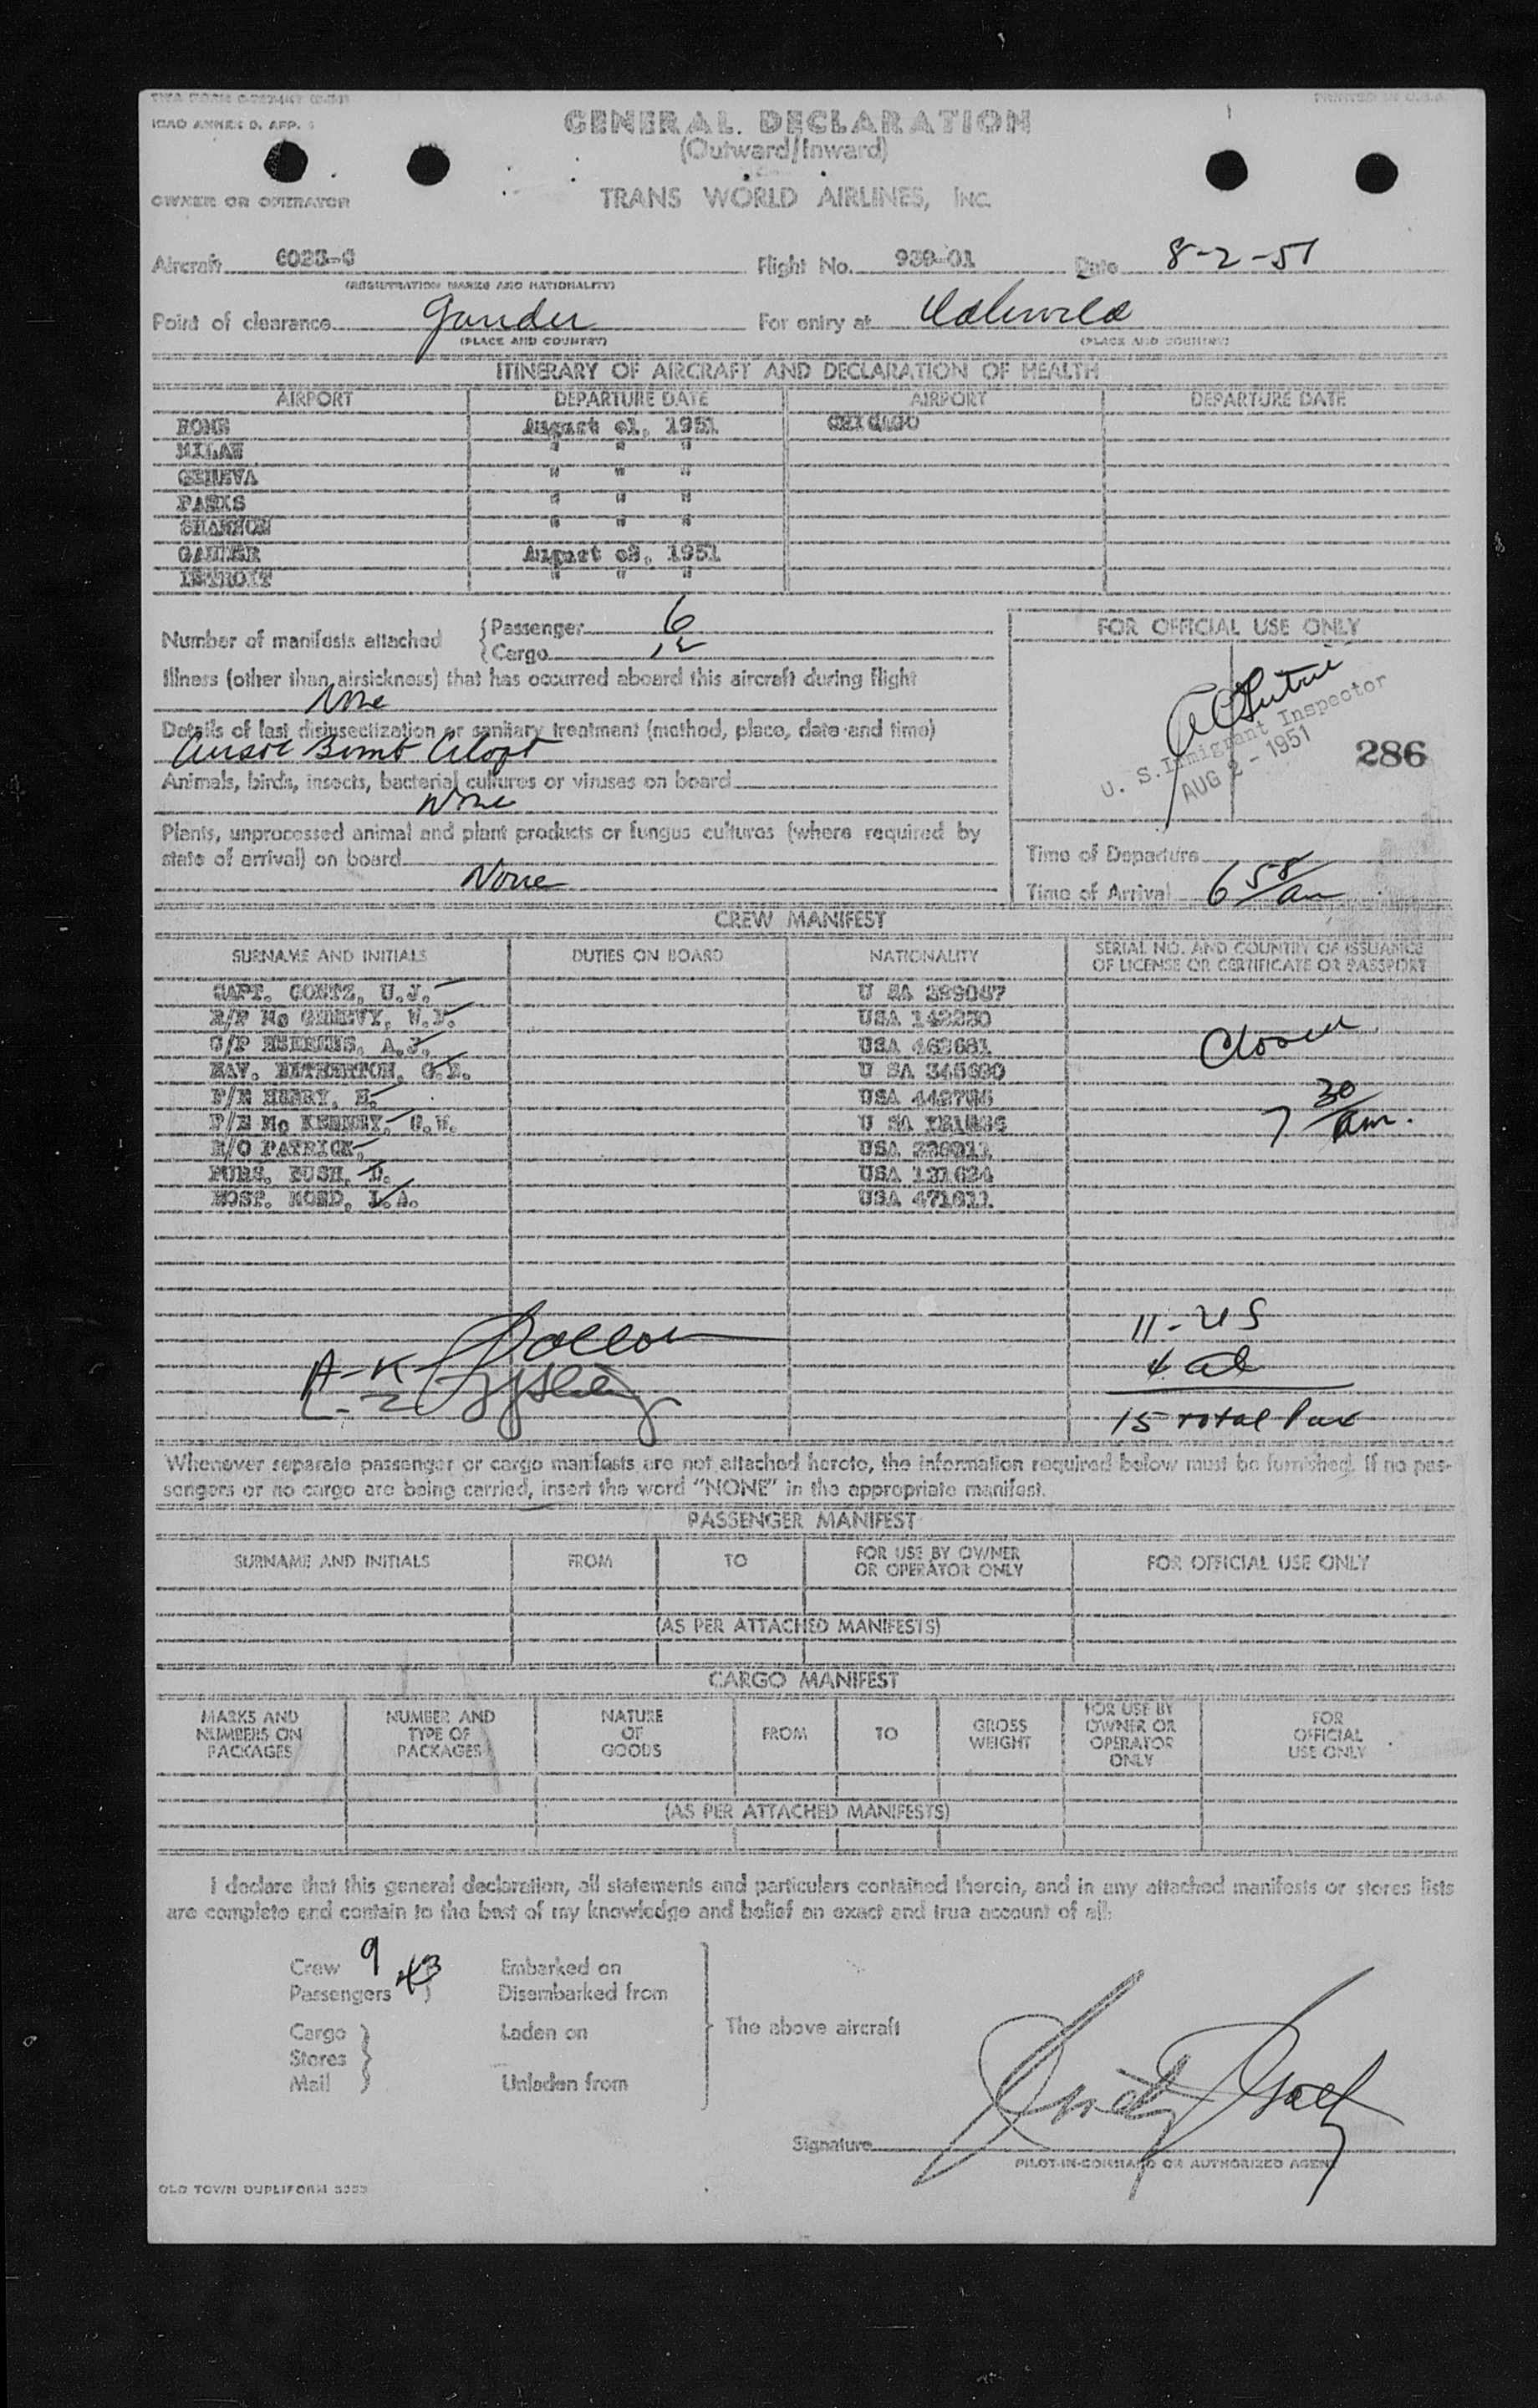 ICAO ANNEX 9, APP.
PRINTED IN U.S.A.
GENERAL DECLARATION
(Outward/Inward)
OWNER OR OPERATOR
TRANS WORLD AIRLINES, INC.
Aircraft Flight No. Date 8-2-51
(REGISTRATION MARKS AND NATIONALITY)
Point of clearance Gander For entry at Idlewild
(PLACE AND COUNTRY) (PLACE AND COUNTRY)
ITINERARY OF AIRCRAFT AND DECLARATION OF HEALTH
AIRPORT DEPARTURE DATE AIRPORT DEPARTURE DATE
ROME August 01, 1951 CHICAGO
MILAN " " "
GENEVA " " "
PARIS " " "
SHANNON " " "
GANDER August 02, 1951
DETROIT " " "
Number of manifests attached
Passenger 6
Cargo
Illness (other than airsickness) that has occurred aboard this aircraft during flight
None
Details of last disinsectization or sanitary treatment (method, place, date and time)
Bomb
Animals, birds, insects, bacterial cultures or viruses on board
None
Plants, unprocessed animal and plant products or fungus cultures (where required by
state of arrival) on board
None
FOR OFFICIAL USE ONLY
U. S. Immigrant Inspector
AUG 2 - 1951
286
Time of Departure
Time of Arrival 6 58/am
CREW MANIFEST
SURNAME AND INITIALS DUTIES ON BOARD NATIONALITY SERIAL NO. AND COUNTRY OF ISSUANCE
OF LICENSE OR CERTIFICATE OR PASSPORT
CAPT. GOETZ, U.J. U SA
W.F. USA
A.J. USA 463681
NAV. ETHERTON, G.E. U SA
F/E HENRY, E. USA
F/E Mc KENNEY, C.W. U SA
R/O PATRICK, USA
PURS. BUSH, D. USA 131624
HOST. USA 471611
7 30/am.
11 - US
4 al
15 total Pax
Whenever separate passenger or cargo manifests are not attached hereto, the information required below must be furnished. If no pas-
sengers or no cargo are being carried, insert the word "NONE" in the appropriate manifest.
PASSENGER MANIFEST
SURNAME AND INITIALS FROM TO FOR USE BY OWNER
OR OPERATOR ONLY FOR OFFICIAL USE ONLY
(AS PER ATTACHED MANIFESTS)
CARGO MANIFEST
MARKS AND
NUMBERS ON
PACKAGES
NUMBER AND
TYPE OF
PACKAGES
NATURE
OF
GOODS
FROM
TO
GROSS
WEIGHT
FOR USE BY
OWNER OR
OPERATOR
ONLY
FOR
OFFICIAL
USE ONLY
(AS PER ATTACHED MANIFESTS)
I declare that this general declaration, all statements and particulars contained therein, and in any attached manifests or stores lists
are complete and contain to the best of my knowledge and belief an exact and true account of all:
Crew 9 Embarked on
Passengers 43 Disembarked from
Cargo Laden on
Stores
Mail Unladen from
The above aircraft
Signature
PILOT-IN-COMMAND OR AUTHORIZED AGENT
OLD TOWN DUPLIFORM